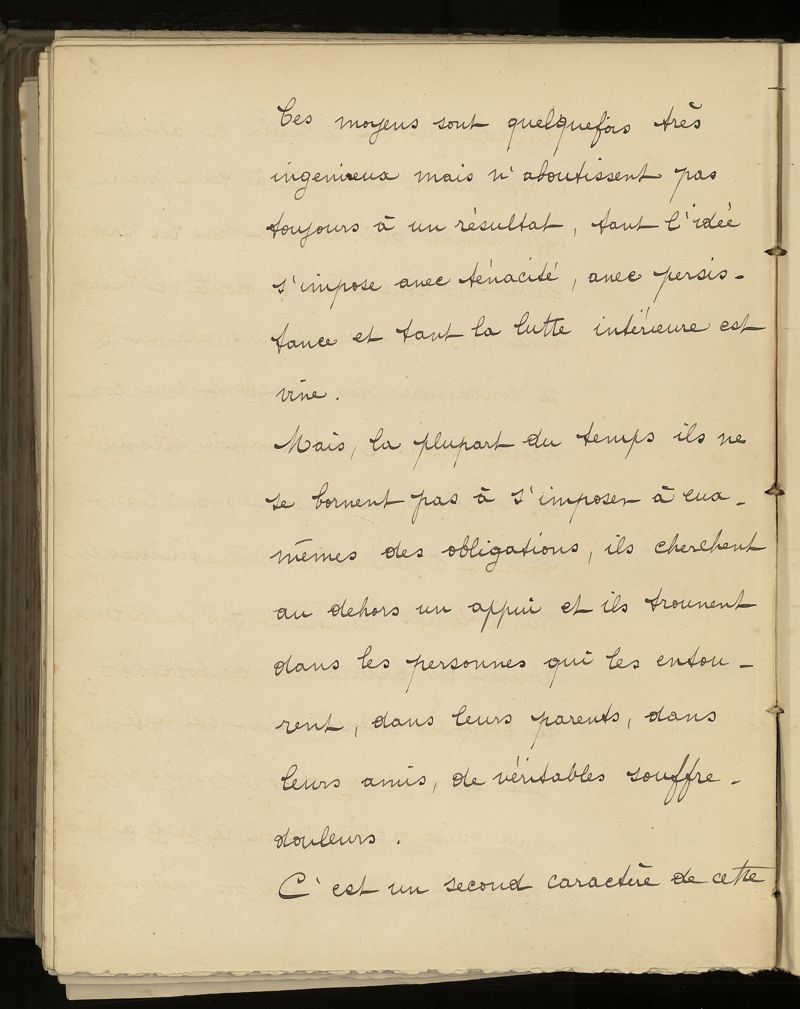 Ces moyens sont quelquefois très
ingenieux mais n'aboutissent pas
toujours à un résultat, tant l'idée
s'impose avec ténacité, avec persis-
tance et tant la lutte intérieure est
vive.
Mais, la plupart du temps ils ne
se bornent pas à s'imposer à eux-
mêmes des obligations, ils cherchent
au dehors un appui et ils trouvent
dans les personnes qui les entou-
rent, dans leurs parents, dans
leurs amis, de véritables souffre-
douleurs.
C'est un second caractère de cette